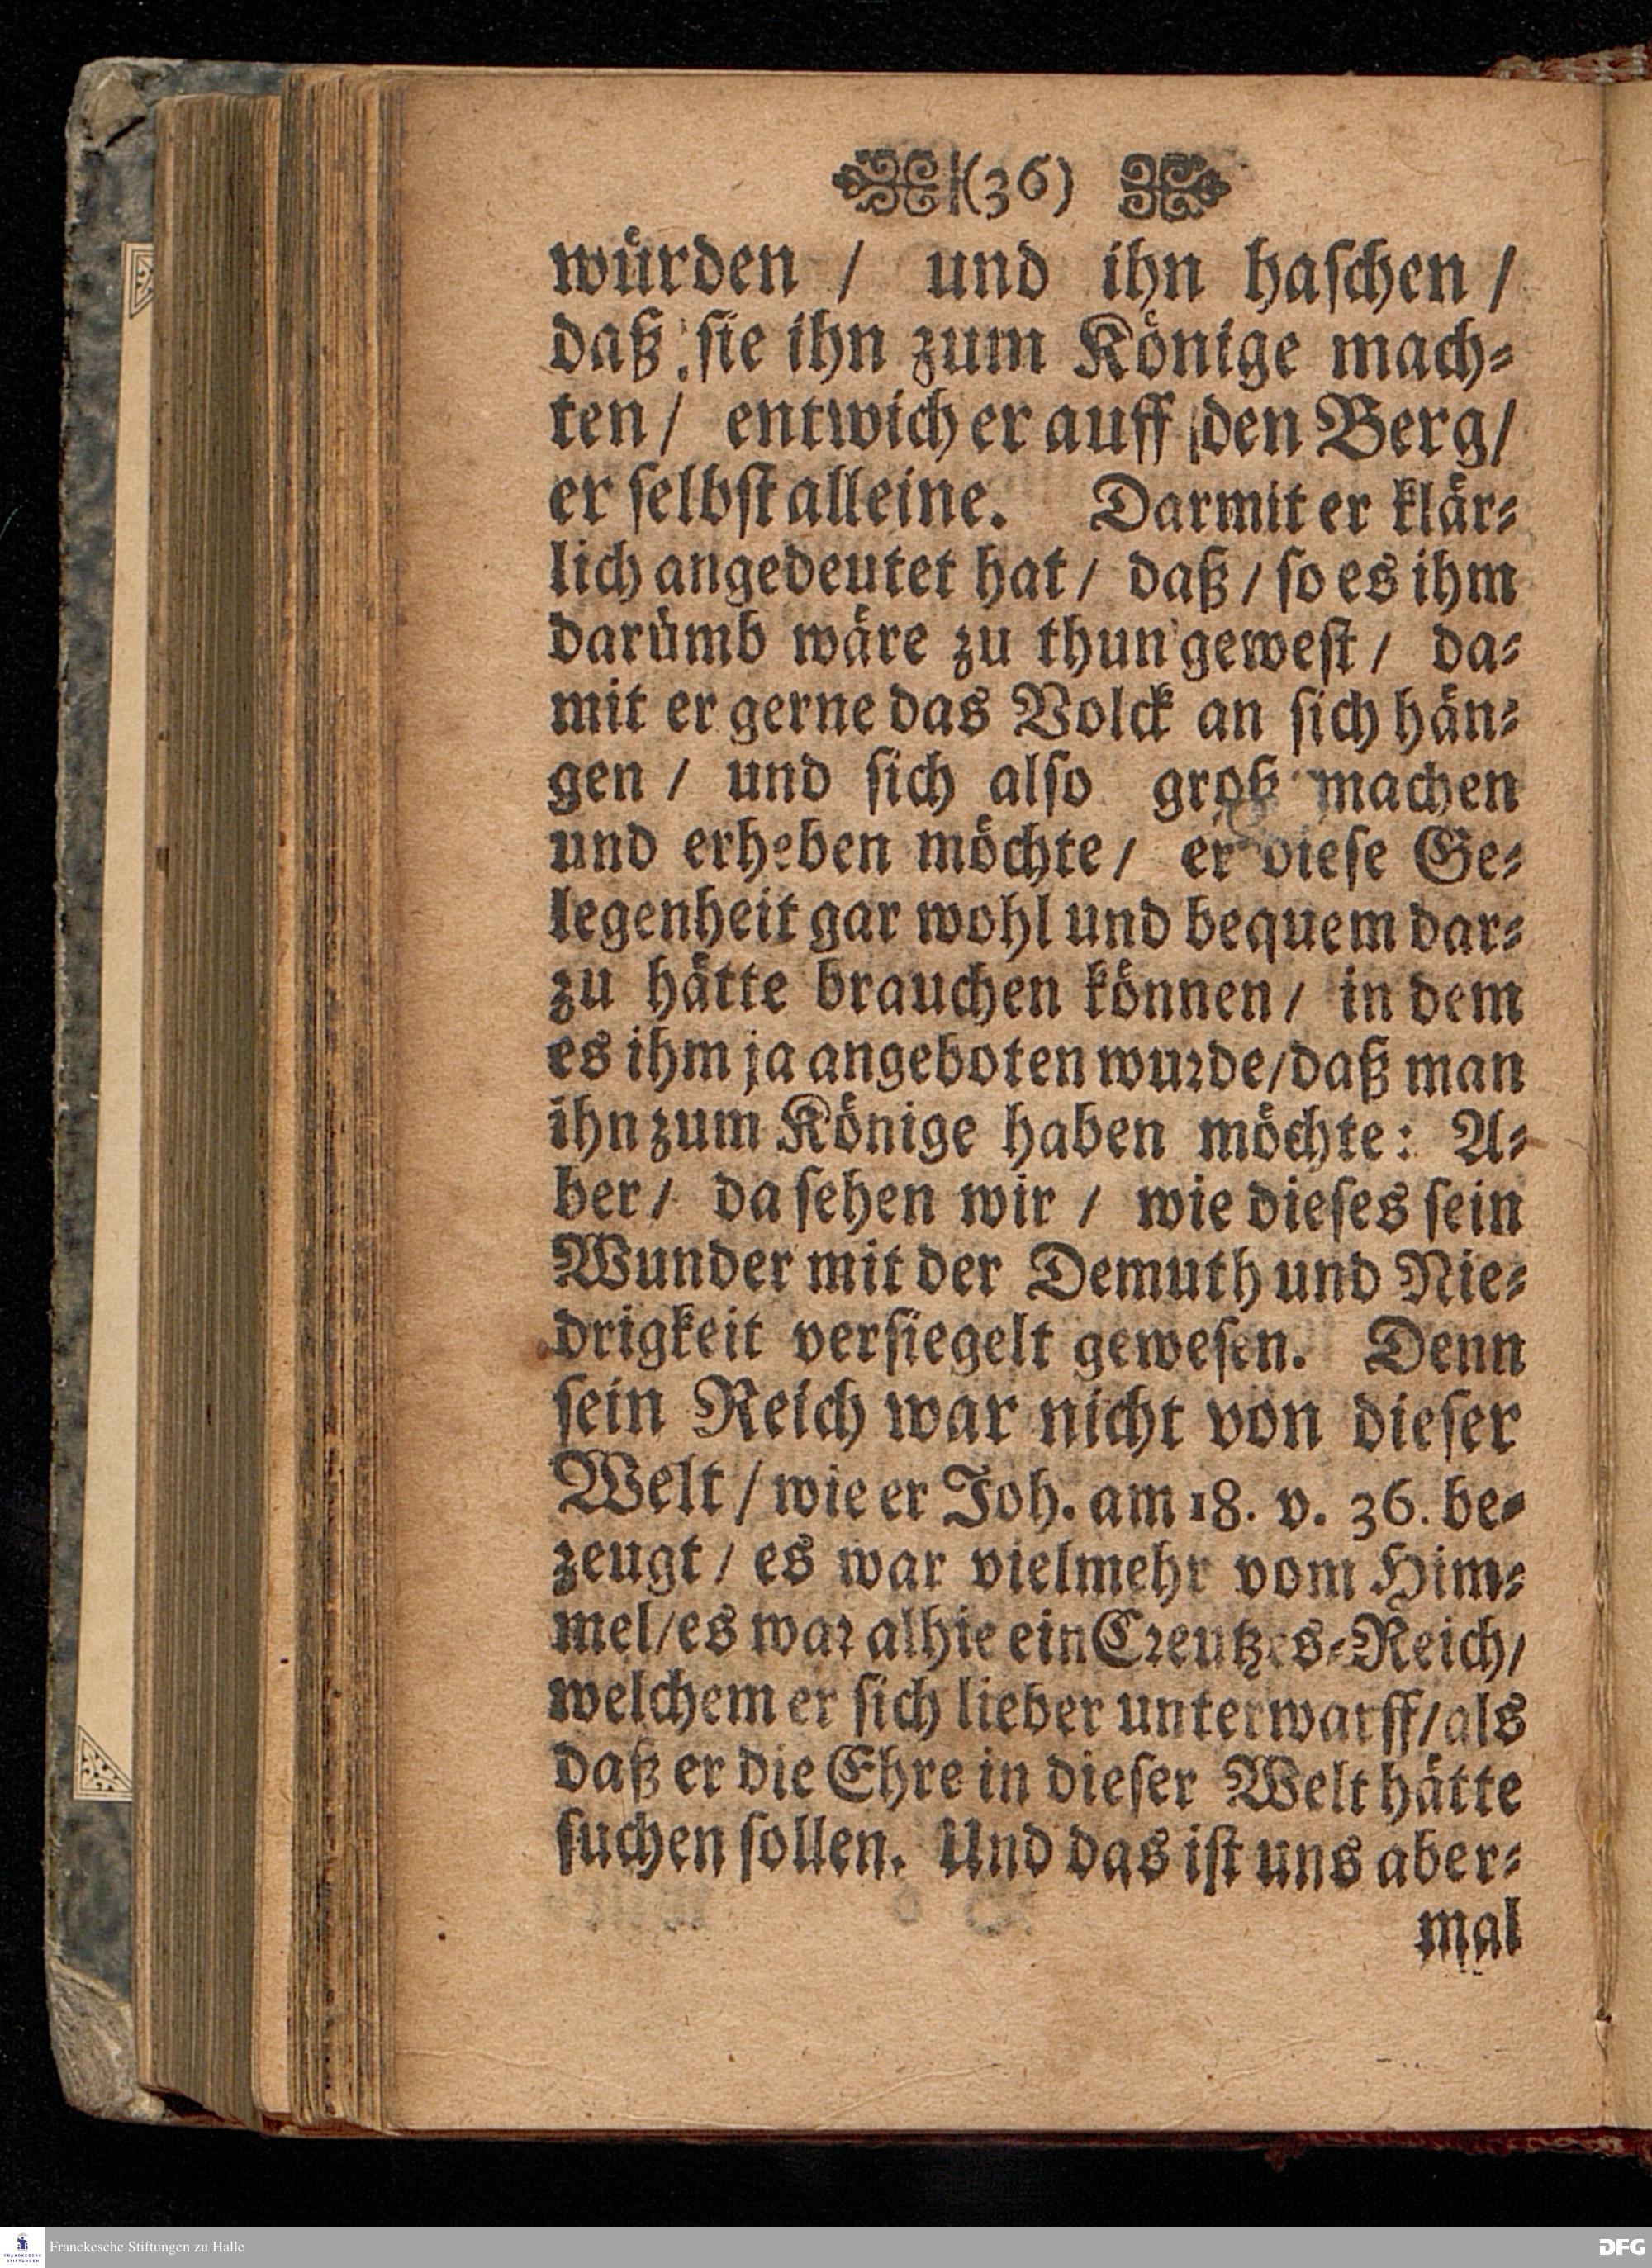 (36)
würden / und ihn haſchen /
daß ſie ihn zum Könige mach⸗
ten / entwich er auff den Berg /
er ſelbſt alleine. Darmit er klär⸗
lich angedeutet hat / daß / ſo es ihm
darümb wäre zu thun geweſt / da⸗
mit er gerne das Volck an ſich hän⸗
gen / und ſich alſo groß machen
und erheben möchte / er dieſe Ge⸗
legenheit gar wohl und bequem dar⸗
zu hätte brauchen können / in dem
es ihm ja angeboten wuꝛde / daß man
ihn zum Könige haben möchte: A⸗
ber / da ſehen wir / wie dieſes ſein
Wunder mit der Demuth und Nie⸗
drigkeit verſiegelt geweſen. Denn
ſein Reich war nicht von dieſer
Welt / wie er Joh. am 18. v. 36. be⸗
zeugt / es war vielmehr vom Him⸗
mel / es waꝛ alhie ein Cꝛeutzes⸗Reich /
welchem er ſich lieber unterwarff / als
daß er die Ehre in dieſer Welt hätte
ſuchen ſollen. Und das iſt uns aber⸗
mal
FRANCKESCHE STIFTUNGEN
Franckesche Stiftungen zu Halle
DFG